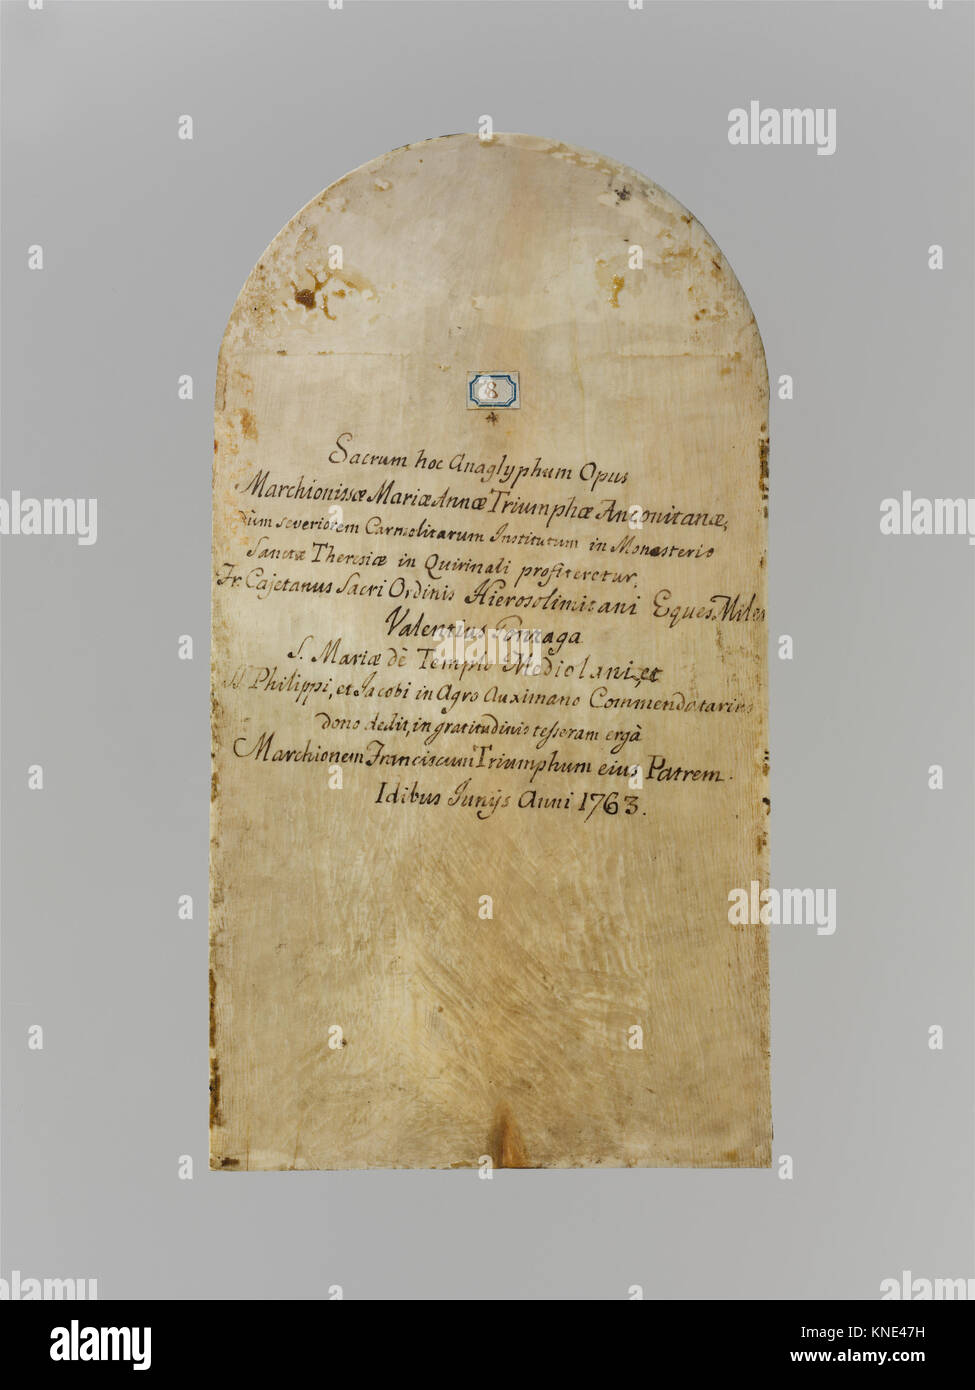 8
Sacrum hoc Anaglyphum Opus
Marchionissæ Mariæ Annæ Triumphæ Anconitanæ,
severiorem Carmelitarum Institutum in Monasterio
Sanctæ Theresiæ in Quirinali profiteretur,
Fr. Cajetanus Sacri Ordinis Hierosolimitani Eques, Miles
Valentius Gonzaga
S. Mariæ dè Templo Mediolani, et
SS. Philippi, et Jacobi in Agro Auximano Commendatarius
dono dedit, in gratitudinis tesseram ergà
Marchionem Franciscum Triumphum eius Patrem.
Idibus Junijs Anni 1763.
alamy
alamy
alamy
alamy
alamy
alamy
alamy
a
alamy
Image ID: KNE47H
www.alamy.com